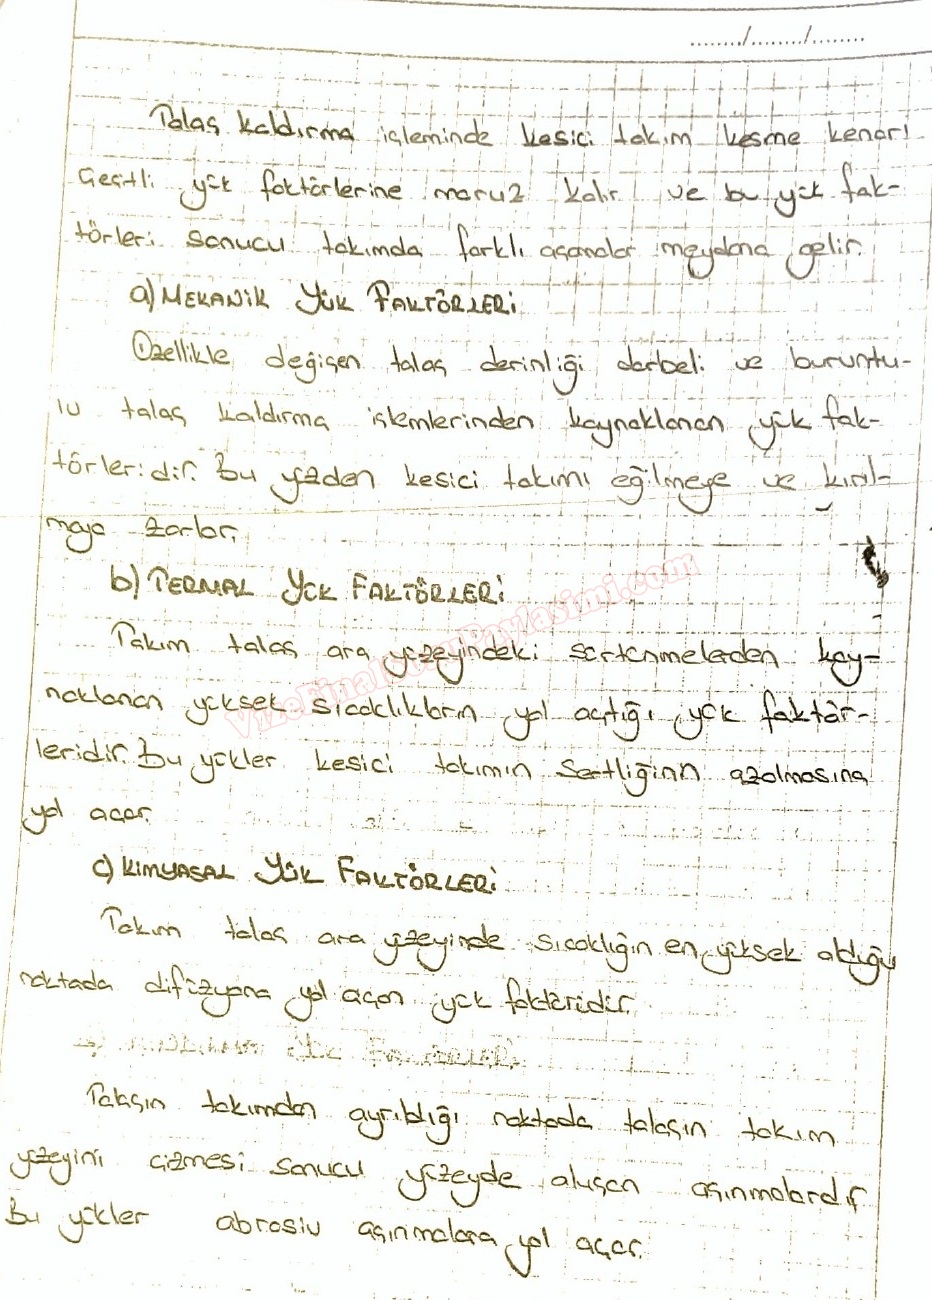 ......../......../........
Talaş kaldırma işleminde kesici takım kesme kenarı
çeşitli yük faktörlerine maruz kalır ve bu yük fak-
törleri sonucu takımda farklı aşamalar meydana gelir.
a) MEKANİK YÜK FAKTÖRLERİ
Özellikle değişen talaş derinliği darbeli ve buruntu-
lu talaş kaldırma işlemlerinden kaynaklanan yük fak-
törleridir. Bu yüzden kesici takımı eğilmeye ve kırıl-
maya zorlar.
b) TERMAL YÜK FAKTÖRLERİ
Takım talaş ara yüzeyindeki sürtünmelerden kay-
naklanan yüksek sıcaklıkların yol açtığı yük faktör-
leridir. Bu yükler kesici takımın sertliğinin azalmasına
yol açar.
c) KİMYASAL YÜK FAKTÖRLERİ
Takım talaş ara yüzeyinde sıcaklığın en yüksek olduğu
noktada difüzyona yol açan yük faktörüdür.
Talaşın takımdan ayrıldığı noktada talaşın takım
yüzeyini çizmesi sonucu yüzeyde oluşan aşınmalardır
Bu yükler abrasiv aşınmalara yol açar.
VizeFinalSoruPaylasimi.com